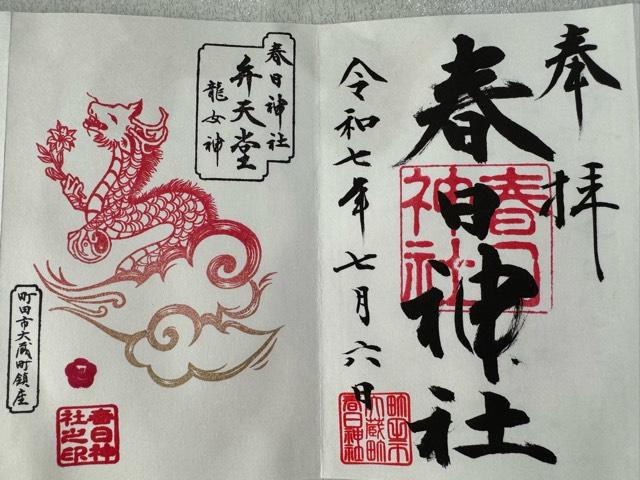 奉拝
春日神社
春日神社
令和七年七月六日
町田市
大蔵町
春日神社
春日神社
弁天堂
龍女神
町田市大蔵町鎮座
春日神
社之印